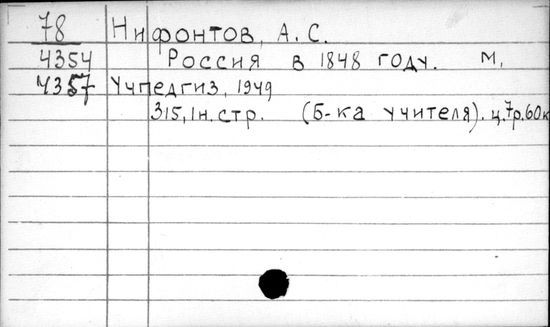 78 Нифонтов, А. С.
4354 Россия в 1848 году. М,
4357 Учпедгиз, 1949
315, 1 н. стр. (Б-ка учителя). ц. 7р. 60к